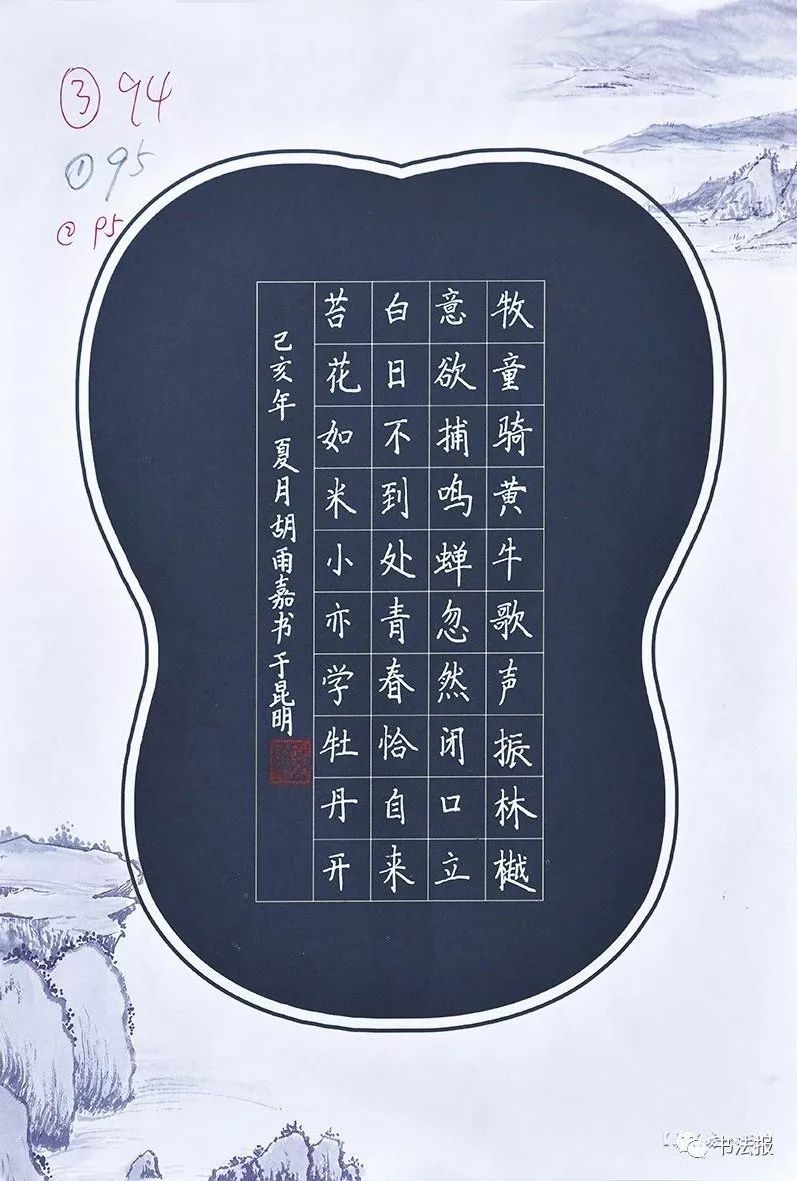 ③ 94
① 95
② 95
牧童骑黄牛歌声振林樾
意欲捕鸣蝉忽然闭口立
白日不到处青春恰自来
苔花如米小亦学牡丹开
己亥年夏月胡雨嘉书于昆明
书法报